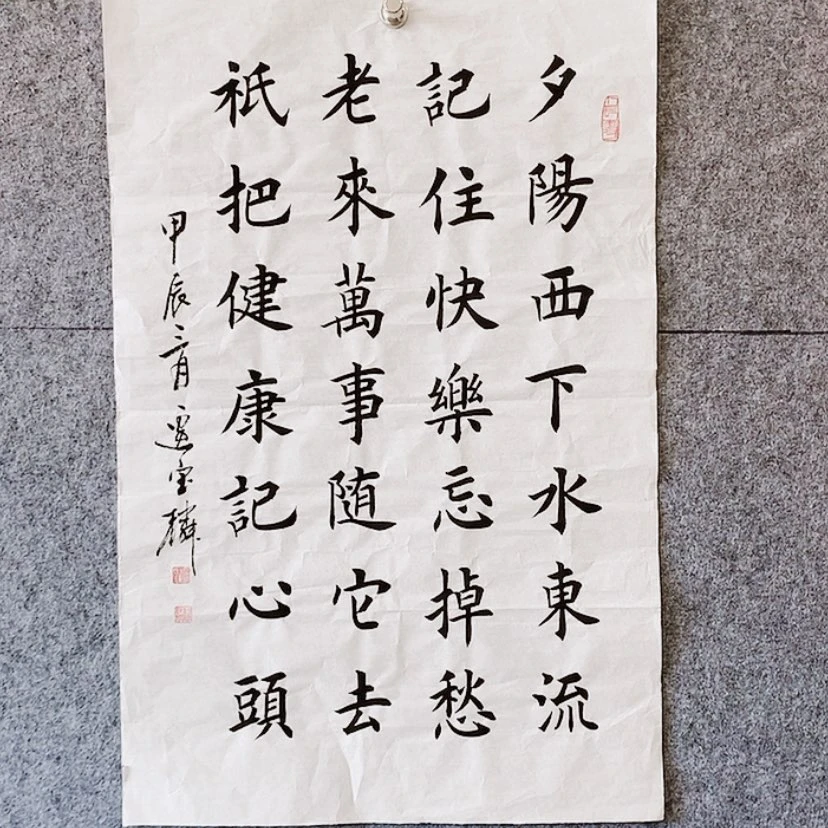 夕陽西下水東流
記住快樂忘掉愁
老來萬事随它去
祇把健康記心頭
甲辰三月邊宝麟